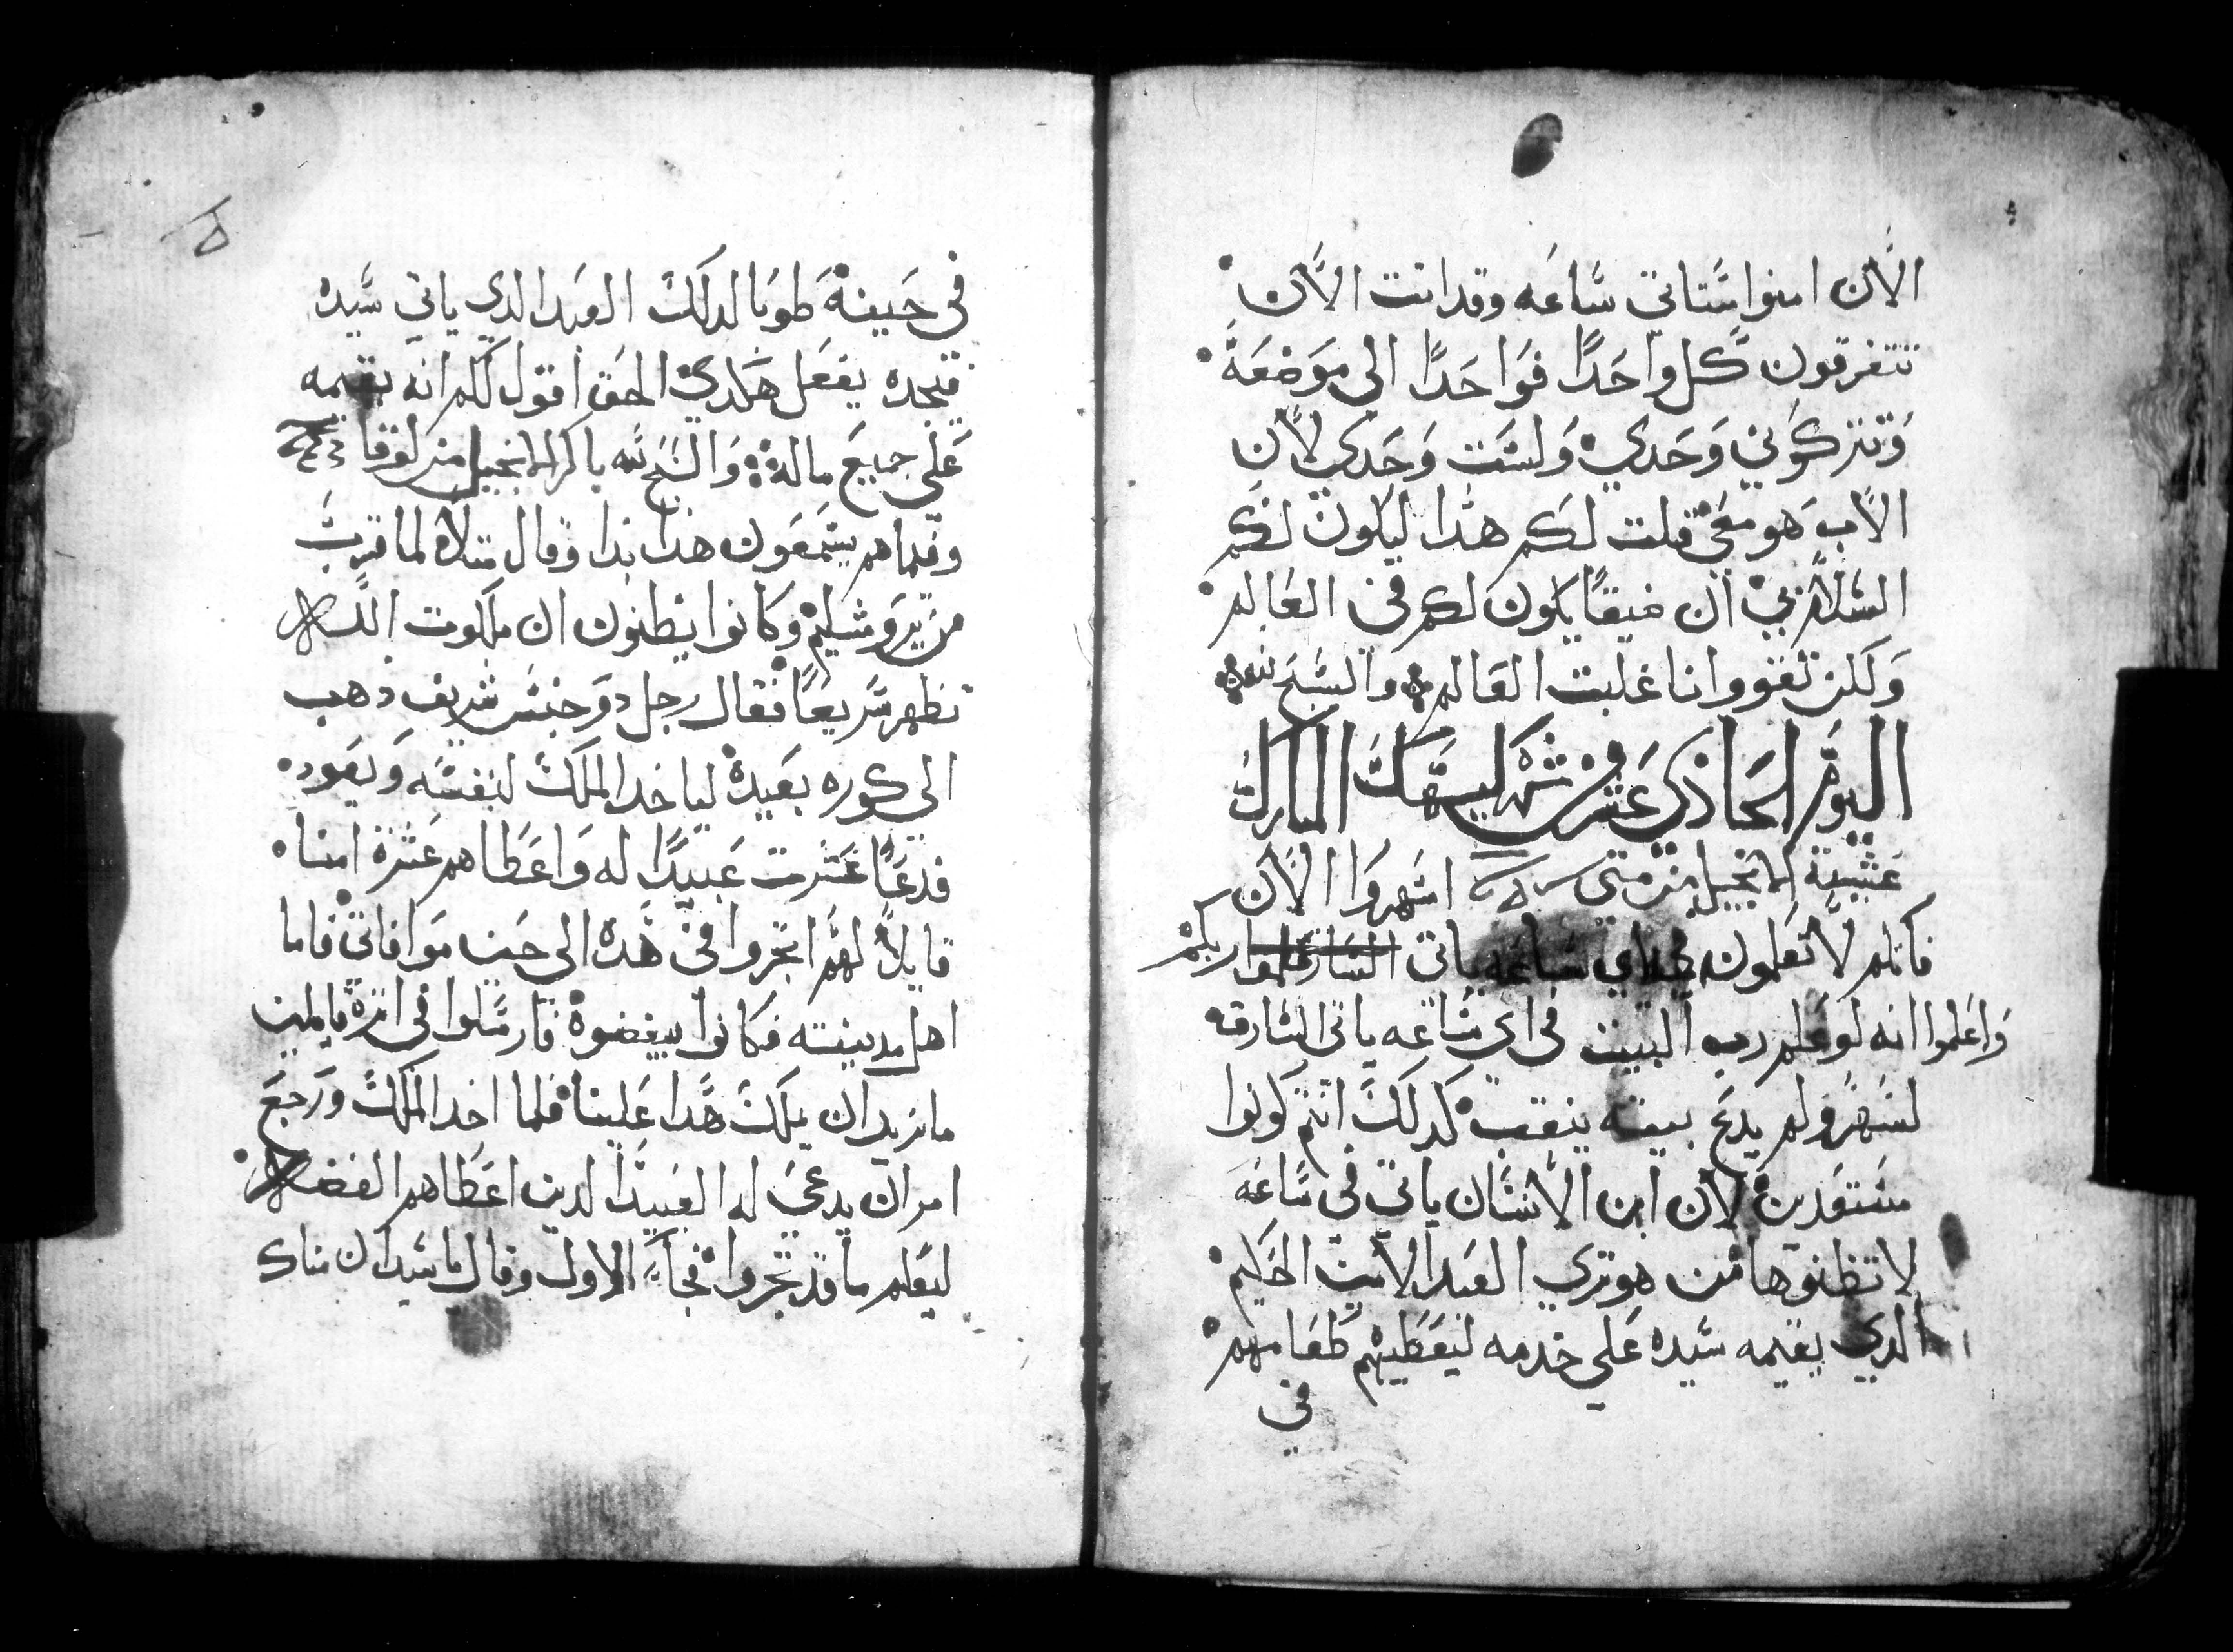 الاَن امنوا سَتاتى سَاعَه وقد اتت الاَن
تتفرقون كل واحَدًا فوَاحَدًا الى موَضعَهَ
وَتتركوني وَحَدي وَلسَت وَحَدي لان
الاَب هو معَي قلت لكم هدا ليكون لكم
السَلام بي ان ضيقًا يكون لكم فى العَالم
وَلكن تقووا انا غلبت العَالم والسَبح لله
اليوَم الحَادي عَشر من شهر كيهك المبارك
عَشية الانجيل من متى اسَهروَا الاَن
فانكم لاَ تعَلمون في اي سَاعَه ياتى ربكم
وَاعَلموا انه لو عَلم رب البيت فى اي سَاعه ياتى السَارق
لسَهر ولم يدعَ بيته ينقب كدلك انتم كونوا
مسَتعَدين لان ابن الاَنسَان ياتى فى سَاعَه
لا تظنوها من هو تري العَبد الاَمين الحَكيم
الدي يقيمه سَيده عَلى خدمه ليعَطيهم طعَامهم
في
فى حَينه طوبَا لدلك العَبد الدي ياتي سَيده
فيجده يفعَل هكدي الحق اقول لكم انه يقيمه
عَلى جميعَ ماله وَالسَبح لله باكر الانجيل من لوقا
وفيما هم يسَمعَون هدا بدا وقال متلاً لما قرب
من يروَشليم وكانوا يظنون ان ملكوت الله
تظهر سَريعًا فقال رجل دوَ جنسَ شريف دهب
الى كوره بعَيده لياخد الملك لنفسَه وَيعَود
فدعَا عَشرت عَبيدًا له وَاعَطاهم عَشرة امنا
قايلاً لهم اتجروا فى هَده الى حَين موَافاتي فاما
اهل مدينته فكانوا يبغضوه فارسَلوا فى اتره قايلين
ما نريد ان يملك هَدا عَلينا فلما اخد الملك وَرجعَ
امر ان يدعي له العَبيد الدين اعَطاهم الفضه
ليعَلم ما قد تجروا فجاَء الاول وقال يا سَيد ان مناك